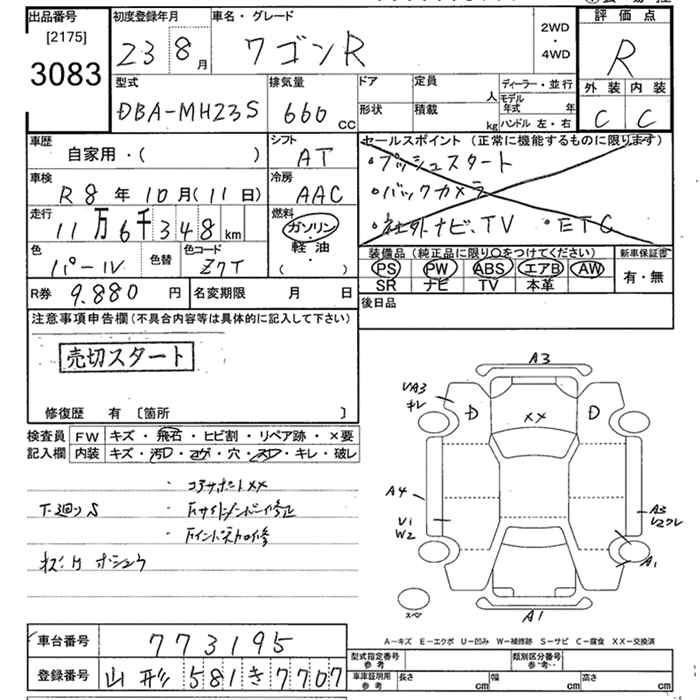 出品番号 [2175] 3083
初度登録年月 23 8月
車名・グレード ワゴンR
2WD ・ 4WD
評価点 R
外装 内装
C C
型式 DBA-MH23S
排気量 660 cc
ドア 定員 人
形状 積載 kg
ディーラー・並行
モデル年式 年
ハンドル 左・右
車歴 自家用・( )
シフト AT
車検 R8年10月(11日)
冷房 AAC
走行 11万6千348km
燃料 ガソリン・軽油・( )
色 パール 色替 色コード Z7T
R券 9.880円 名変期限 月 日
セールスポイント (正常に機能するものに限ります)
・プッシュスタート
・バックカメラ
・社外ナビ、TV ・ETC
装備品 (純正品に限り○をつけてください) 新車保証書
PS PW ABS エアB AW 有・無
SR ナビ TV 本革
後日品
注意事項申告欄 (不具合内容等は具体的に記入して下さい)
売切スタート
修復歴 有 [箇所 ]
検査員記入欄
FW キズ・飛石・ヒビ割・リペア跡・×要
内装 キズ・汚D・コゲ・穴・スレ・キレ・破レ
・コアサポートXX
下廻りS
A3
VA3
キレ
D XX D
A4
V1
W2
A3
A1
スペ
A1
A−キズ E−エクボ U−凹み W−補修跡 S−サビ C−腐食 XX−交換済
車台番号 773195
登録番号 山形581き7707
型式指定番号 参考 類別区分番号 参考
車庫証明用 参考 長さ cm 幅 cm 高さ cm